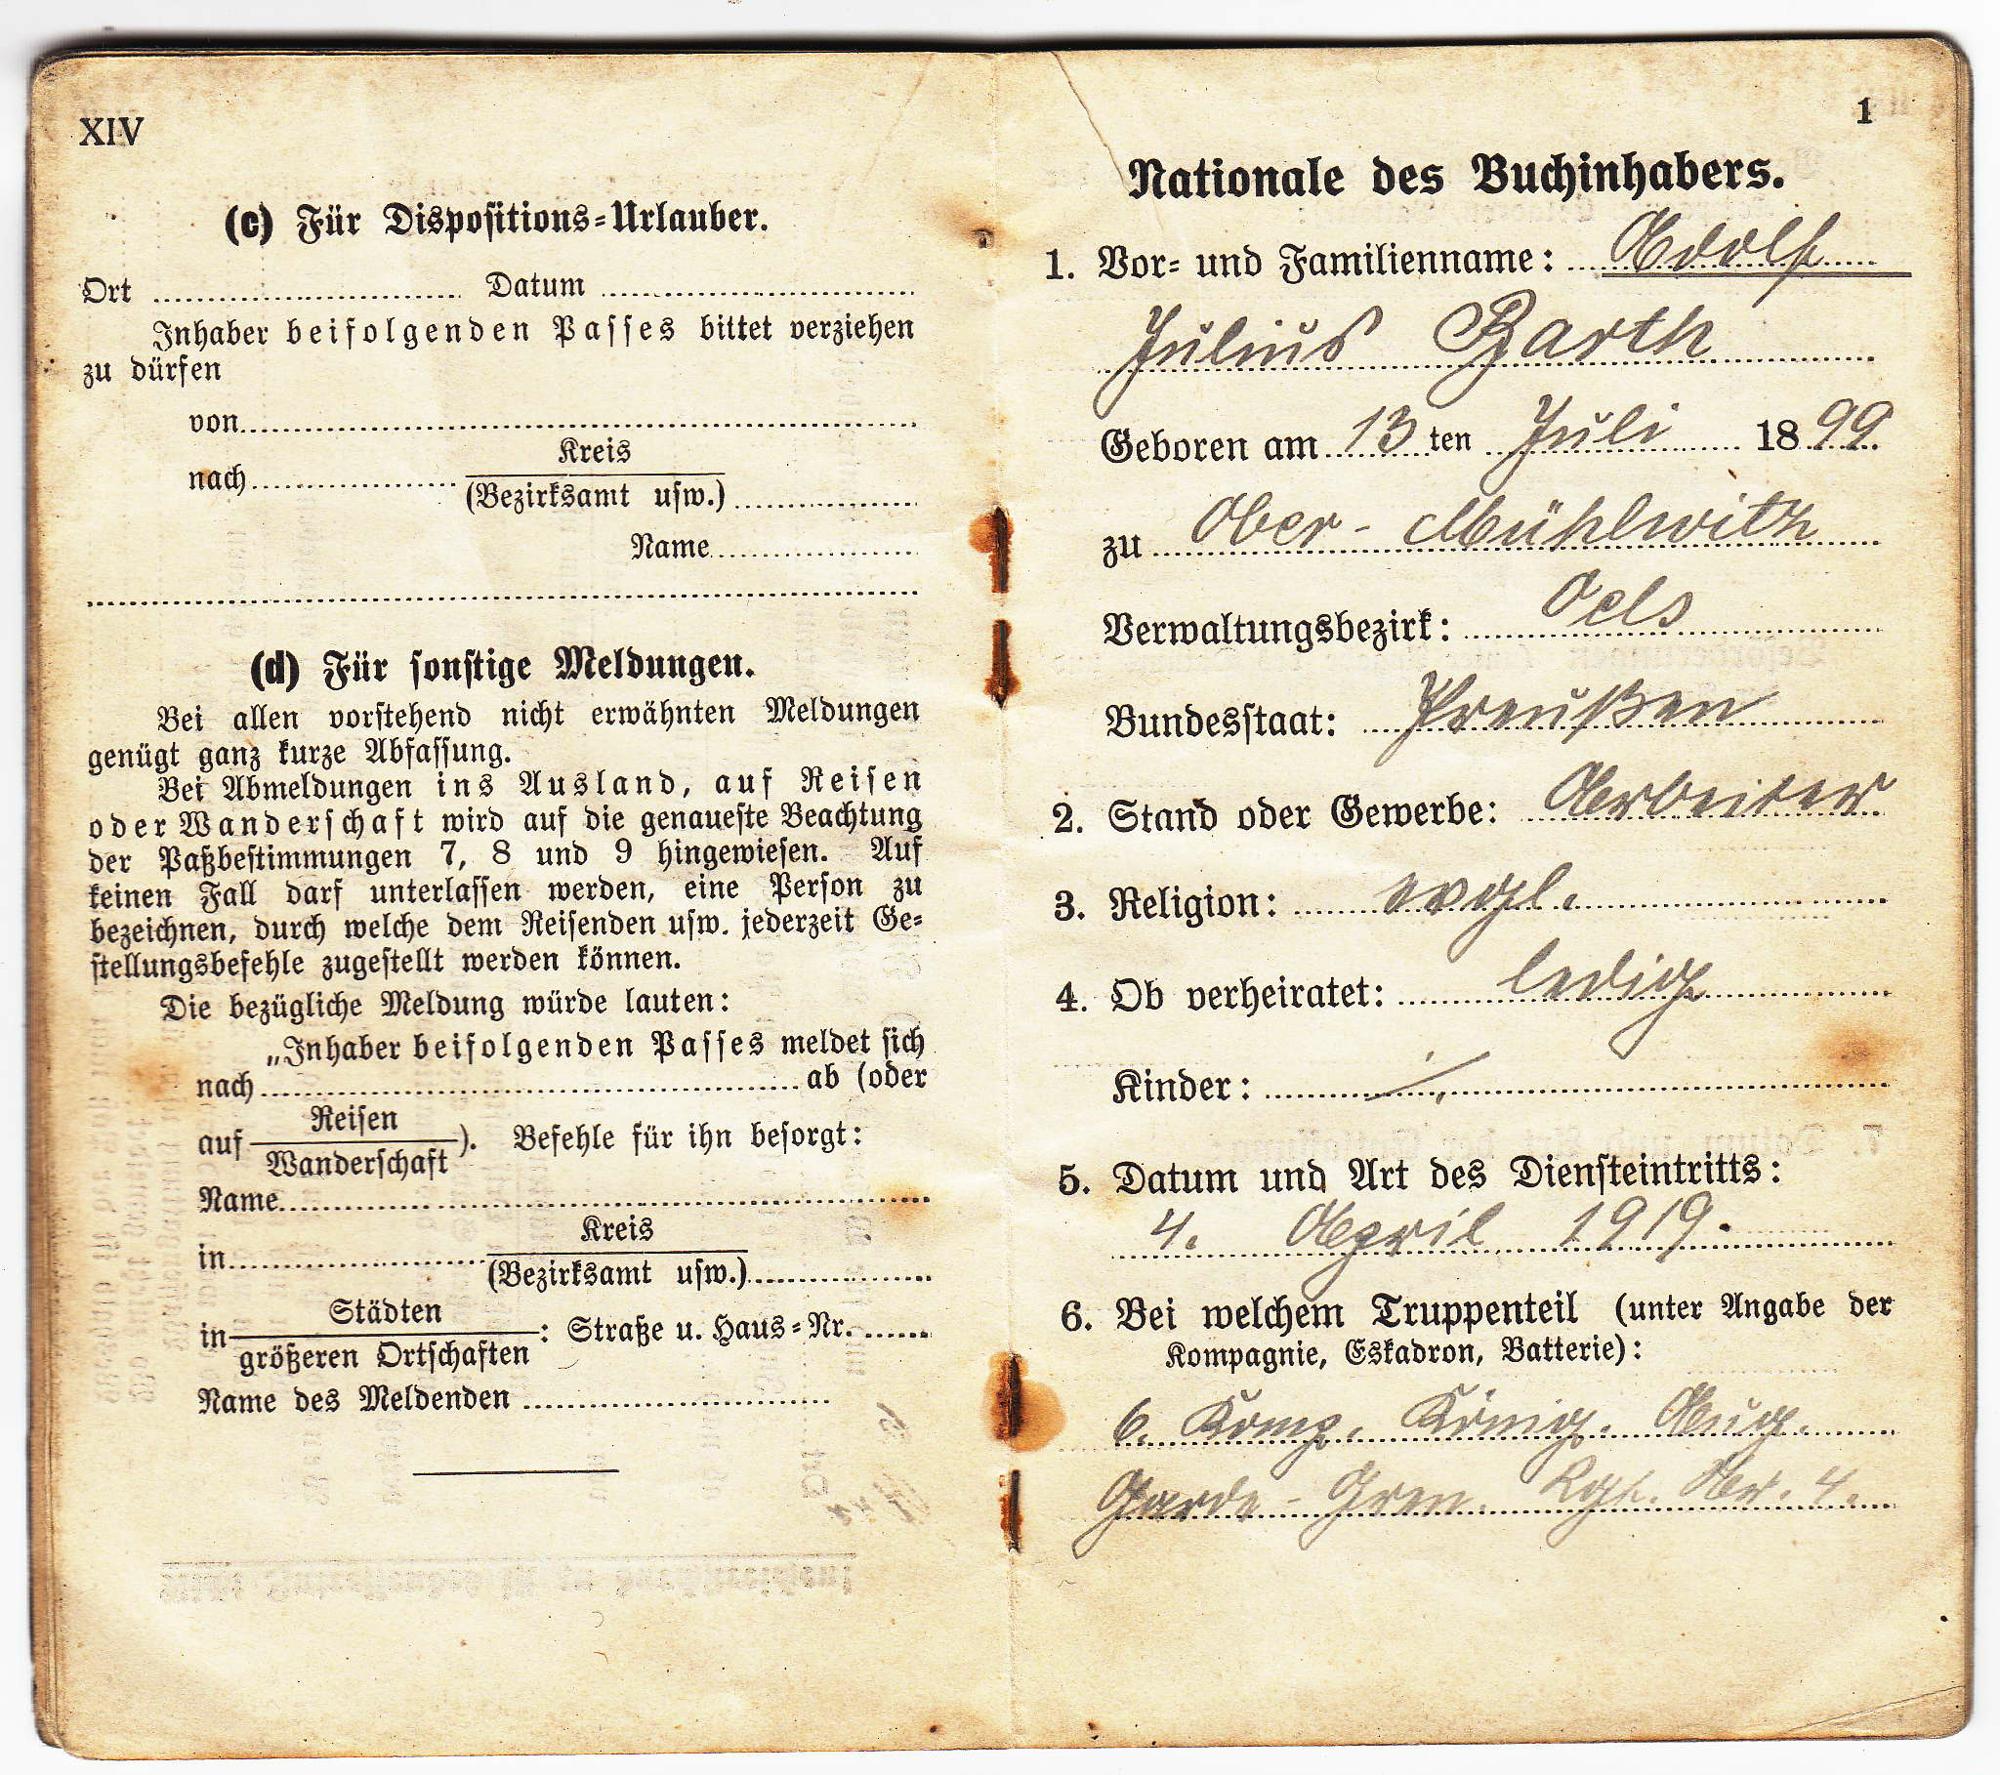 XIV
(c) Für Dispositions=Urlauber.
Ort ........ Datum ........
Inhaber beifolgenden Passes bittet verziehen
zu dürfen
von........
nach........ Kreis
(Bezirksamt usw.)........
Name........
(d) Für sonstige Meldungen.
Bei allen vorstehend nicht erwähnten Meldungen
genügt ganz kurze Abfassung.
Bei Abmeldungen ins Ausland, auf Reisen
oder Wanderschaft wird auf die genaueste Beachtung
der Paßbestimmungen 7, 8 und 9 hingewiesen. Auf
keinen Fall darf unterlassen werden, eine Person zu
bezeichnen, durch welche dem Reisenden usw. jederzeit Ge=
stellungsbefehle zugestellt werden können.
Die bezügliche Meldung würde lauten:
„Inhaber beifolgenden Passes meldet sich
nach ........ ab (oder
auf Reisen
Wanderschaft ). Befehle für ihn besorgt:
Name........
in........ Kreis
(Bezirksamt usw.)........
in Städten
größeren Ortschaften : Straße u. Haus=Nr. ......
Name des Meldenden ........
1
Nationale des Buchinhabers.
1. Vor= und Familienname: Adolf
Julius Barth
Geboren am 13 ten Juli 1899.
zu Ober-Mühlwitz
Verwaltungsbezirk: Oels
Bundesstaat: Preußen
2. Stand oder Gewerbe: Arbeiter.
3. Religion: evgl.
4. Ob verheiratet: ledig
Kinder: ./.
5. Datum und Art des Diensteintritts:
4. April 1919.
6. Bei welchem Truppenteil (unter Angabe der
Kompagnie, Eskadron, Batterie):
6. Komp. König. Aug.
Garde-Gren. Rgt. Nr. 4.